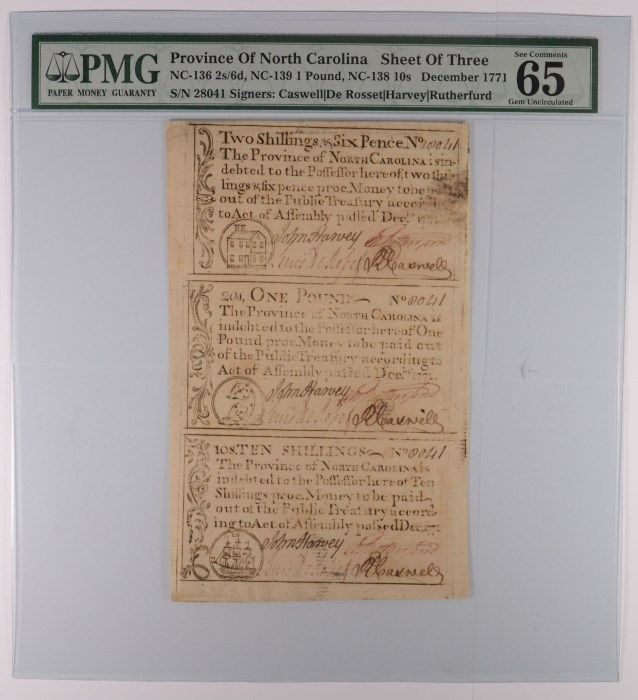 PMG
PAPER MONEY GUARANTY
Province Of North Carolina Sheet Of Three
NC-136 2s/6d, NC-139 1 Pound, NC-138 10s December 1771
S/N 28041 Signers: Caswell|De Rosset|Harvey|Rutherfurd
See Comments
65
Gem Uncirculated
Two Shillings & Six Pence. No
The Province of NORTH CAROLINA is in-
debted to the Possessor hereof, two shil-
lings & six pence proc. Money to be
out of the Public Treasury accord
to Act of Assembly passed Decr. 1771
John Harvey
RCaswell
20s, ONE POUND No 8041
The Province of NORTH CAROLINA is
indebted to the Possessor here of One
Pound proc. Money to be paid out
of the Public Treasury according to
Act of Assembly passed Decr. 1771
John Harvey
RCaswell
10s. TEN SHILLINGS No 8041
The Province of NORTH CAROLINA is
indebted to the Possessor here of Ten
Shillings proc. Money to be paid
out of the Public Treasury accord-
ing to Act of Assembly passed Dec. 1771
John Harvey
RCaswell